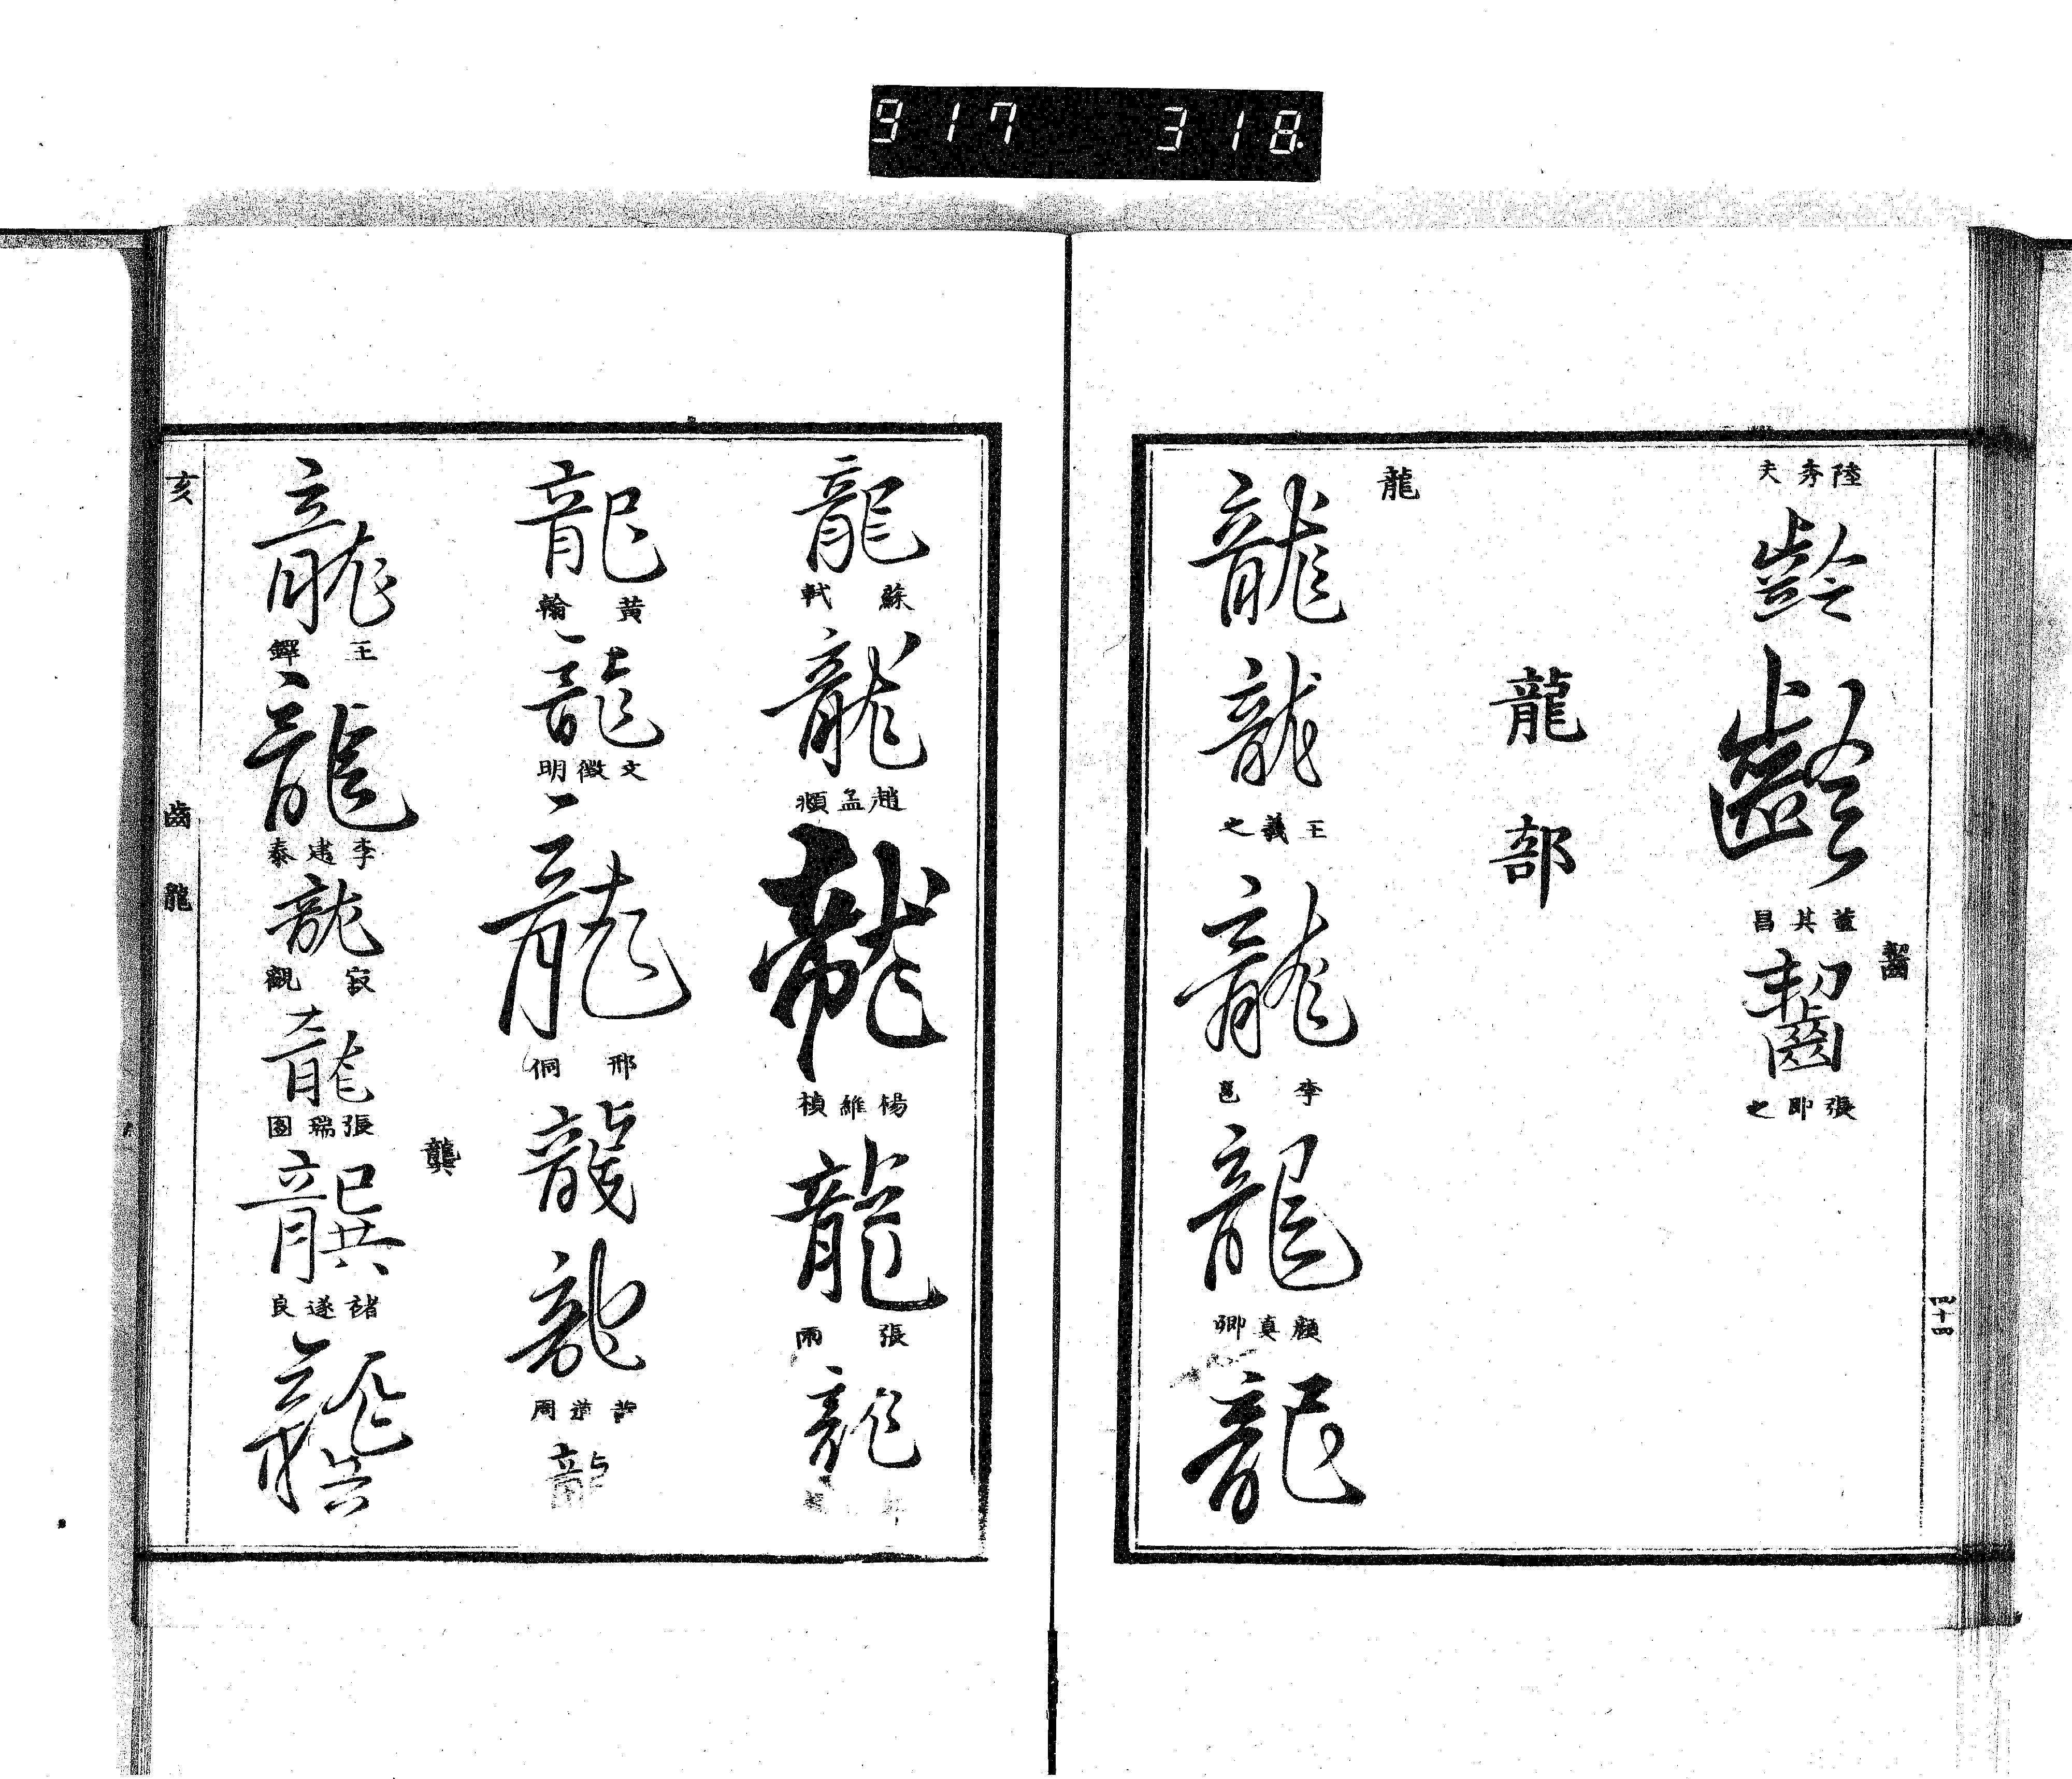 917 318
陸秀夫
齡
齡
董其昌
齧
齧
張即之
四十四
龍部
龍
龍
龍
王羲之
龍
李邕
龍
顏真卿
龍
龍
蘇軾
龍
趙孟頫
龍
楊維楨
龍
張雨
龍
龍
黃翰
龍
文徵明
龍
邢侗
龍
龍
黃道周
龍
龍
王鐸
龍
李建泰
龍
寂觀
龍
張瑞圖
龔
龔
褚遂良
龔
亥
齒龍